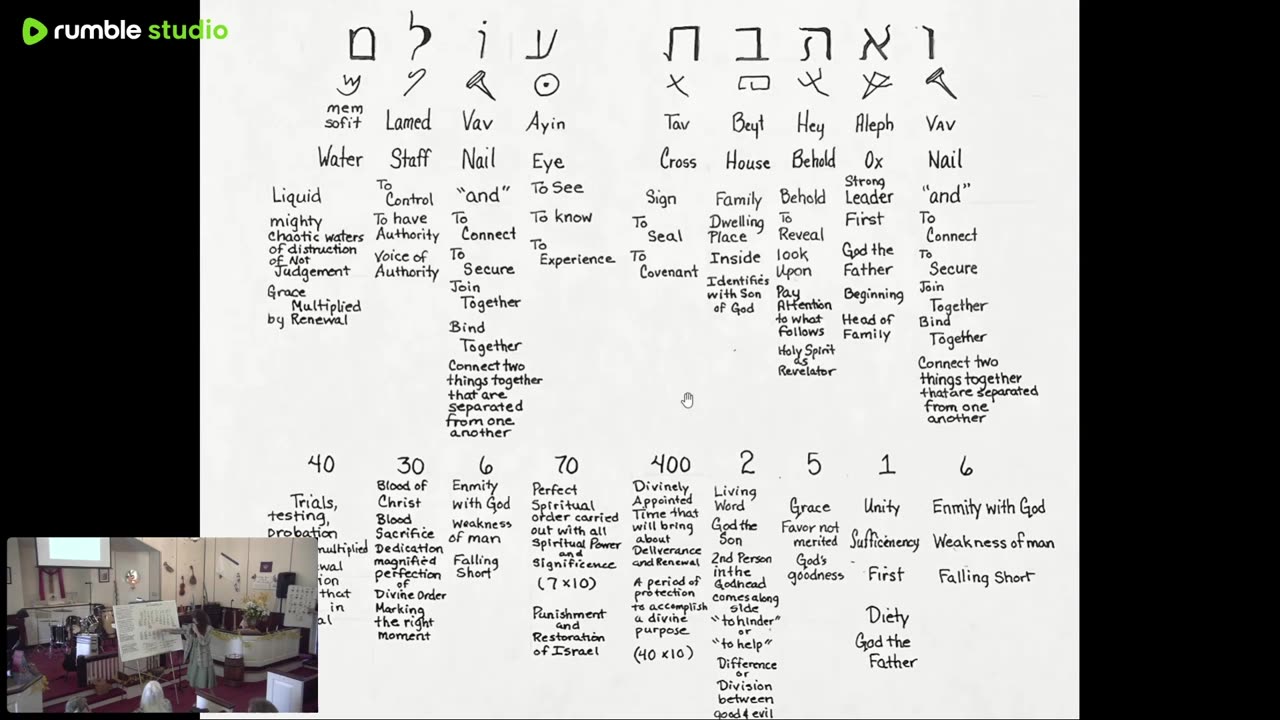 rumble studio
ו א ה ב ת ע ו ל ם
mem
sofit
Water
Liquid
mighty
chaotic waters
of distruction
of Not
Judgement
Grace
Multiplied
by Renewal
Lamed
Staff
To
Control
To have
Authority
Voice of
Authority
Vav
Nail
"and"
To
Connect
To
Secure
Join
Together
Bind
Together
Connect two
things together
that are
separated
from one
another
Ayin
Eye
To See
To know
To
Experience
Tav
Cross
Sign
To
Seal
To
Covenant
Beyt
House
Family
Dwelling
Place
Inside
Identifies
with Son
of God
Hey
Behold
Behold
To
Reveal
look
Upon
Pay
Attention
to what
follows
Holy Spirit
as
Revelator
Aleph
Ox
Strong
Leader
First
God the
Father
Beginning
Head of
Family
VAV
Nail
"and"
To
Connect
To
Secure
Join
Together
Bind
Together
Connect two
things together
that are separated
from one
another
40
Trials,
testing,
probation
multiplied
that
in
30
Blood of
Christ
Blood
Sacrifice
Dedication
magnified
perfection
of
Divine Order
Marking
the right
moment
6
Enmity
with God
Weakness
of man
Falling
Short
70
Perfect
Spiritual
order carried
out with all
Spiritual Power
and
Significence
(7 x 10)
Punishment
and
Restoration
of Israel
400
Divinely
Appointed
Time that
will bring
about
Deliverance
and Renewal
A period of
protection
to accomplish
a divine
purpose
(40 x 10)
2
Living
Word
God the
Son
2nd Person
in the
Godhead
comes along
side
"to hinder"
or
"to help"
Difference
or
Division
between
good & evil
5
Grace
Favor not
merited
God's
goodness
1
Unity
Sufficenency
First
Diety
God the
Father
6
Enmity with God
Weakness of man
Falling Short